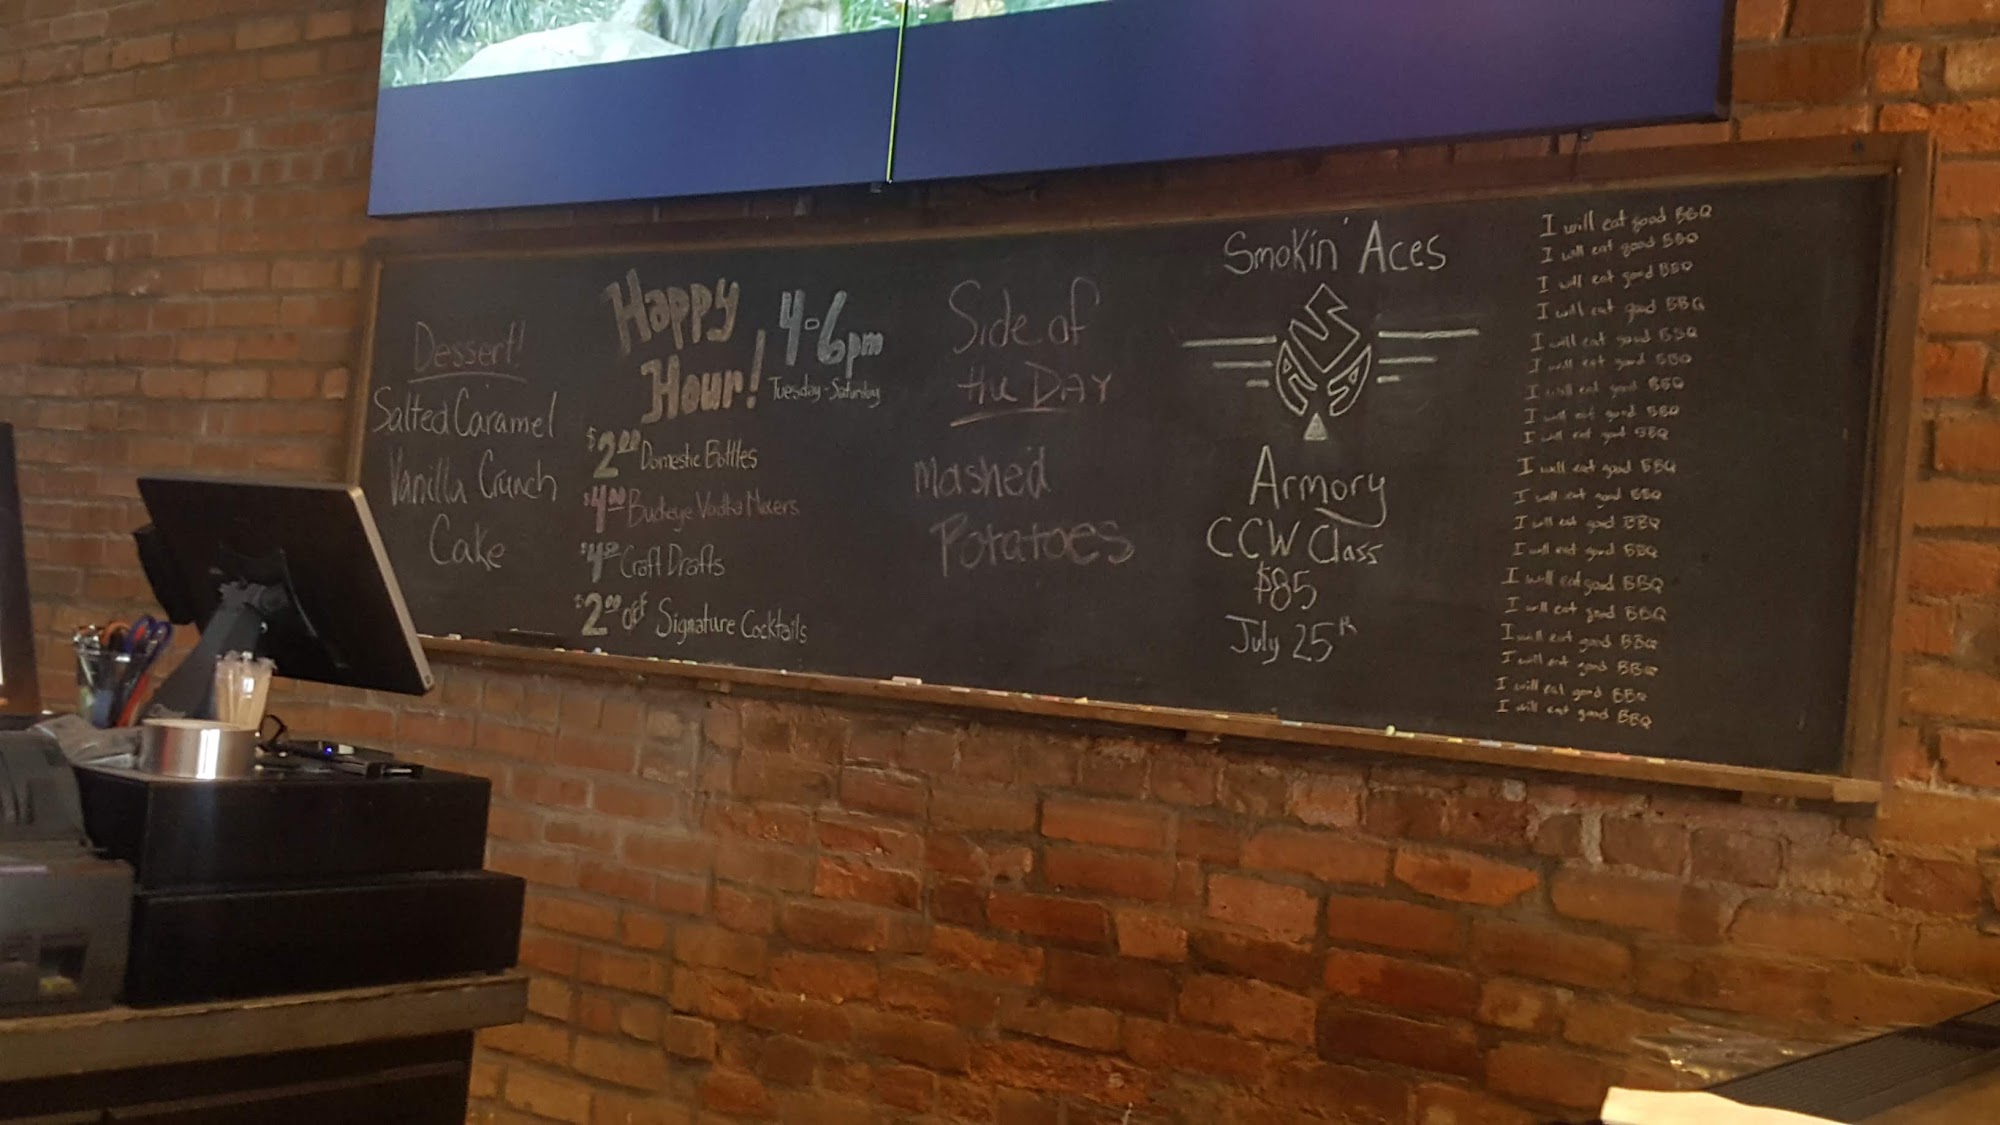 Dessert!
Salted Caramel
Vanilla Crunch
Cake
Happy
Hour!
4-6pm
Tuesday-Saturday
$2.00 Domestic Bottles
$4.00 Buckeye Vodka Mixers
$4.50 Craft Drafts
$2.00 off Signature Cocktails
Side of
the DAY
Mashed
Potatoes
Smokin' Aces
Armory
CCW Class
$85
July 25th
I will eat good BBQ
I will eat good BBQ
I will eat good BBQ
I will eat good BBQ
I will eat good BBQ
I will eat good BBQ
I will eat good BBQ
I will eat good BBQ
I will eat good BBQ
I will eat good BBQ
I will eat good BBQ
I will eat good BBQ
I will eat good BBQ
I will eat good BBQ
I will eat good BBQ
I will eat good BBQ
I will eat good BBQ
I will eat good BBQ
I will eat good BBQ